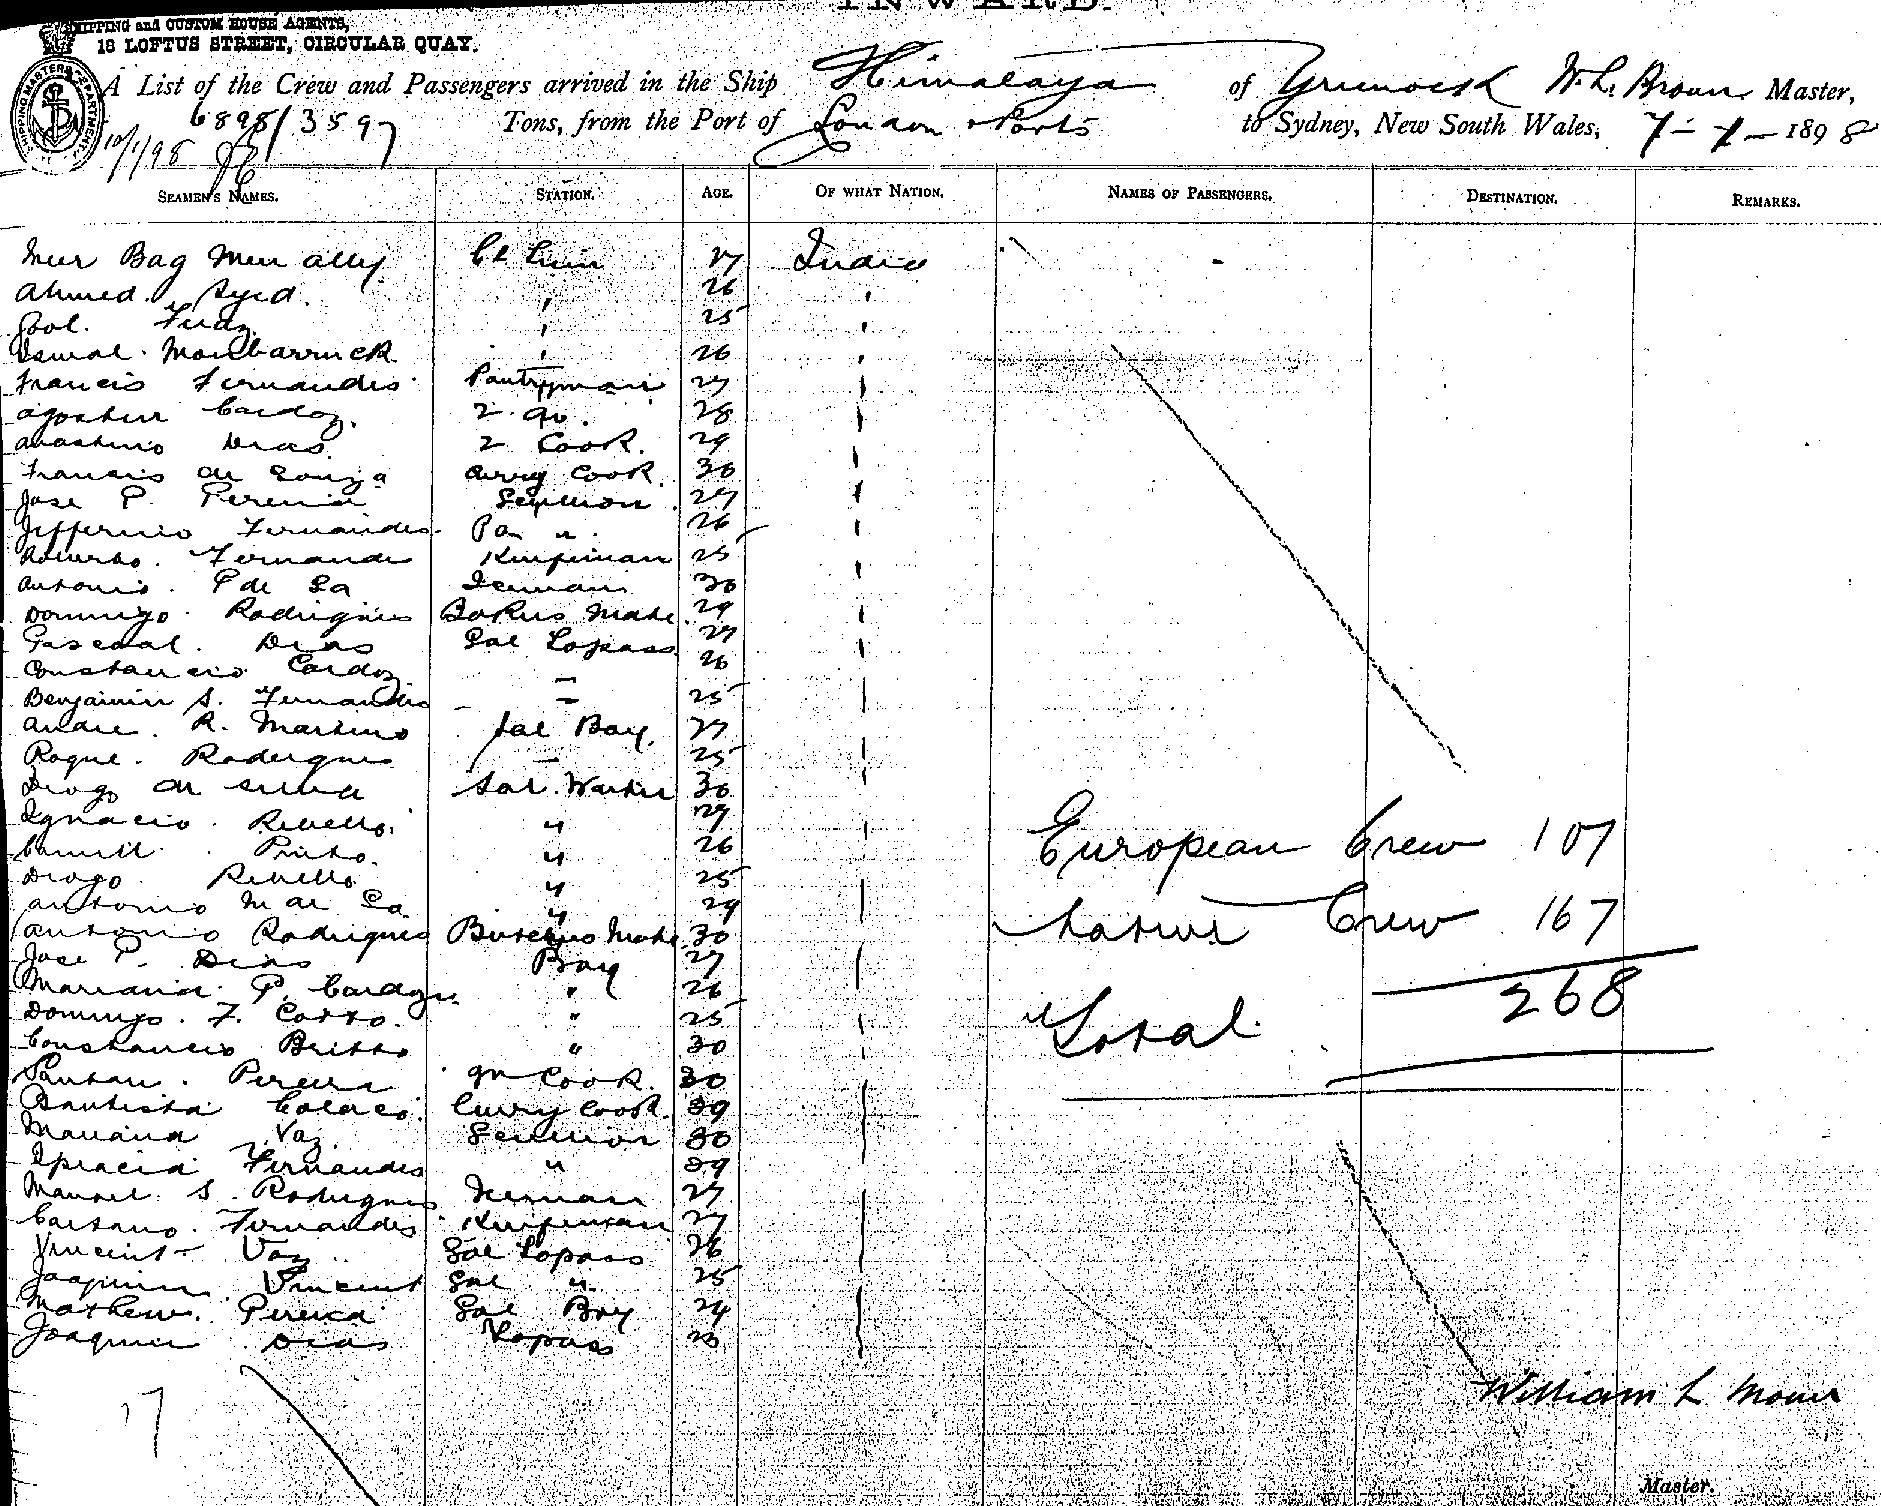 INWARD.
SHIPPING and CUSTOM HOUSE AGENTS,
18 LOFTUS STREET, CIRCULAR QUAY.
SHIPPING MASTERS DEPARTMENT
A List of the Crew and Passengers arrived in the Ship Himalaya of Greenock W. L. Broun Master,
6898/3597 Tons, from the Port of London & Ports to Sydney, New South Wales, 7-1-1898
10/1/98
SEAMEN'S NAMES. STATION. AGE. OF WHAT NATION. NAMES OF PASSENGERS. DESTINATION. REMARKS.
Meer Bag Meer ally 27 India
Ahmed Syed 26
25
26
Francis Fernandes Pantryman 27
Cardoz 2 do. 28
Dias 2 Cook. 29
Francis de Souza Curry Cook. 30
Jose P. Pereira 27
Fernandes Pan " 26
Fernandes 25
Antonio P de Sa Iceman 30
Domingo Rodrigues Bakers Mate 29
Pascoal Dias Sal Topass 27
Constancio Cardoz " 26
Benjamin S. Fernandes " 25
Andre R. Martins Sal Boy. 27
Roque Rodrigues 25
Diogo de Sal Waiter 30
Ignacio Rebello " 29
Pinto " 26
Diogo Rebello " 25
Antonio M de Sa " 24
Antonio Rodrigues Butchers Mate 30
Jose P. Dias Boy 27
P. Cardozo " 26
Domingo F. " 25
Constancio Britto " 30
Pereira Cook. 30
Bautista Colaco Curry Cook. 29
Mariana Vaz 30
Fernandes " 29
Manoel S. Rodrigues Iceman 27
Caetano Fernandes 27
Vincent Vaz Sal Topass 26
Joaquim Vincent Sal " 25
Mathew Pereira Sal Boy 24
Joaquim Dias Topass 23
European Crew 107
Native Crew 167
Total 268
William L
Master.